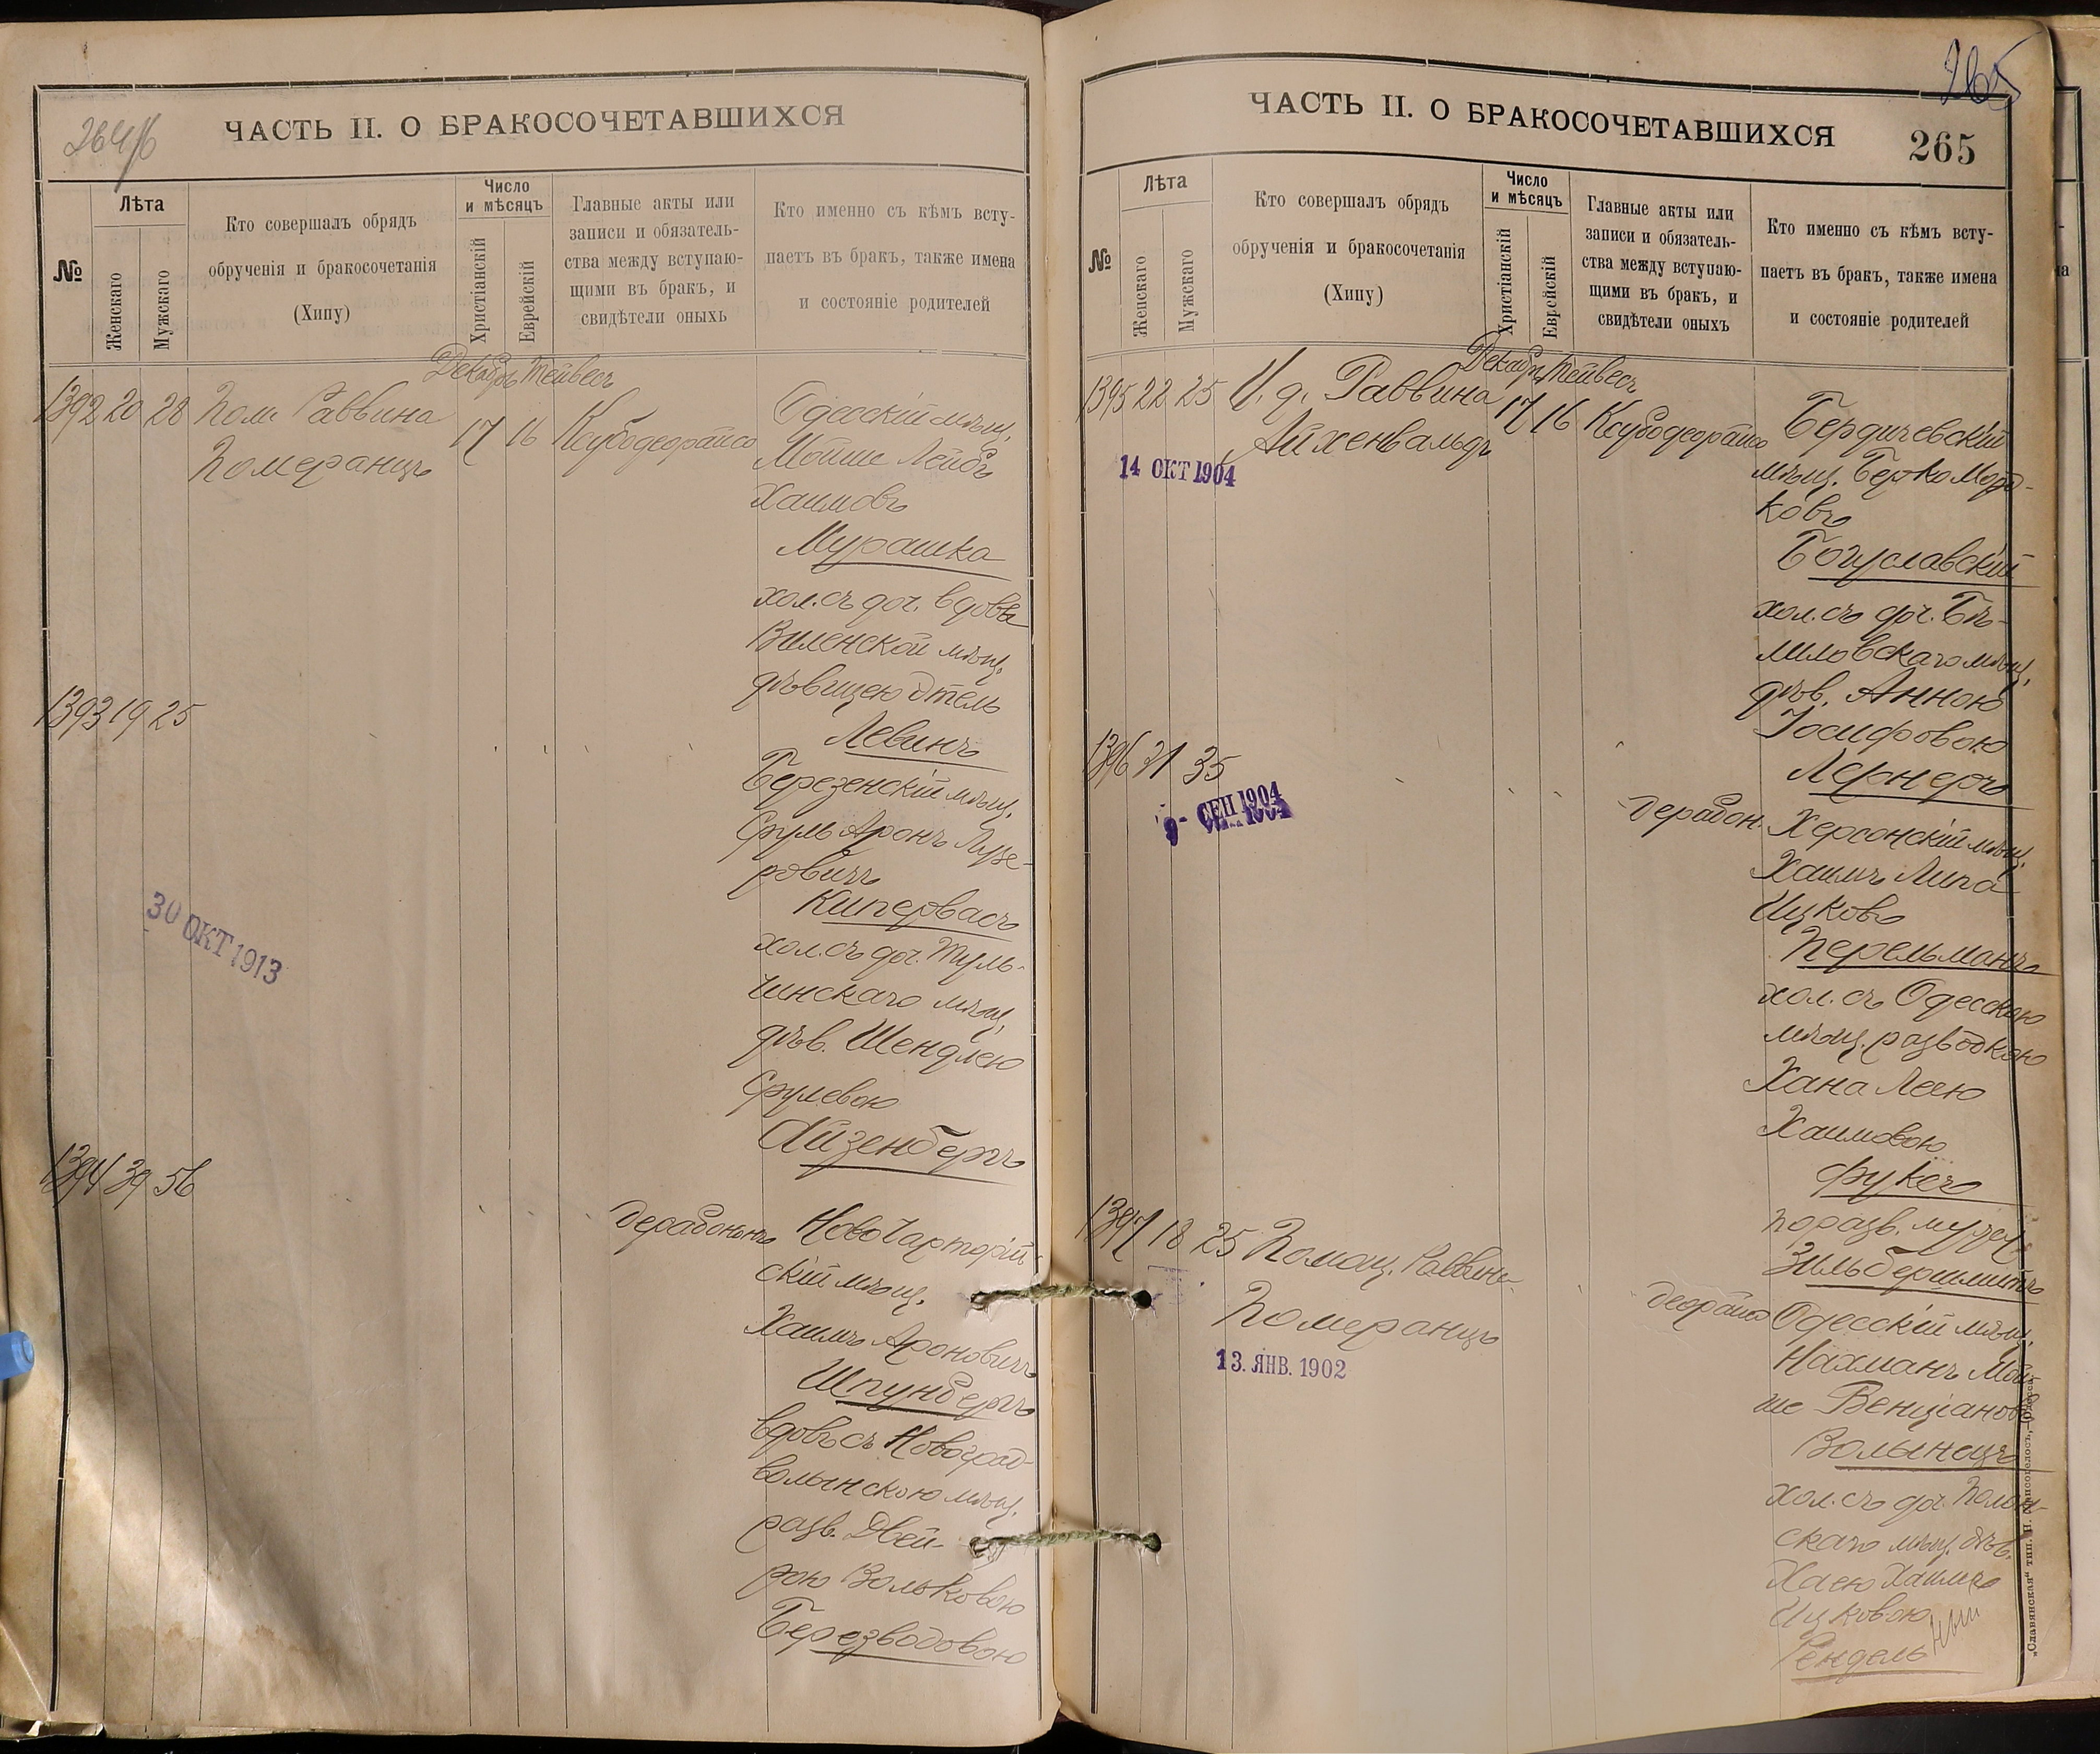 264/б
ЧАСТЬ II. О БРАКОСОЧЕТАВШИХСЯ
№
Лѣта
Женскаго
Мужскаго
Кто совершалъ обрядъ
обрученія и бракосочетанія
(Хипу)
Число
и мѣсяцъ
Христіанскій
Еврейскій
Главные акты или
записи и обязатель-
ства между вступаю-
щими въ бракъ, и
свидѣтели оныхъ
Кто именно съ кѣмъ всту-
паетъ въ бракъ, также имена
и состояніе родителей
Декабрь Тейвесъ
1392 20 28 Пом. Раввина
Померанцъ
17 16
Ксубодеорайсо
Одесскій мѣщ.
Мойше Лейбъ
Хаимовъ
Мурашка
хол. съ доч. вдовы
Виленской мѣщ.
дѣвицею Этель
Левинъ
1393 19 25
30 ОКТ 1913
Березенскій мѣщ.
Сруль Аронъ Лузе-
ровичъ
Кипервасъ
хол. съ доч. Туль-
чинскаго мѣщ.
дѣв. Шендлею
Срулевою
Айзенбергъ
1394 39 56
дерабононъ
Ново Чарторій-
скій мѣщ.
Хаимъ Ароновичъ
Шпунбергъ
вдовъ съ Новоград-
волынскою мѣщ.
разв. Двей-
рою Вольковою
Березводовою
265
ЧАСТЬ II. О БРАКОСОЧЕТАВШИХСЯ
265
№
Лѣта
Женскаго
Мужскаго
Кто совершалъ обрядъ
обрученія и бракосочетанія
(Хипу)
Число
и мѣсяцъ
Христіанскій
Еврейскій
Главные акты или
записи и обязатель-
ства между вступаю-
щими въ бракъ, и
свидѣтели оныхъ
Кто именно съ кѣмъ всту-
паетъ въ бракъ, также имена
и состояніе родителей
Декабрь Тейвесъ
1395 22 25 И. д. Раввина
Айхенвальдъ
14 ОКТ 1904
17 16
Ксубодеорайсо
Бердичевскій
мѣщ. Берко Морд-
ковъ
Богуславскій
хол. съ доч. Бѣ-
лиловскаго мѣщ.
дѣв. Анною
Іосифовою
Лернеръ
1396 31 35
9- СЕН 1904
дерабон.
Херсонскій мѣщ.
Хаимъ Липа
Ицковъ
Перельманъ
хол. съ Одесскою
мѣщ. разводкою
Хана Леею
Хаимовою
Фуксъ
по разв. мужу
Зильбершмитъ
1397 18 25 Помощ. Раввина
Померанцъ
13. ЯНВ. 1902
деорайсо
Одесскій мѣщ.
Нахманъ Мой-
ше Венціановъ
Волынецъ
хол. съ доч. Полон-
скаго мѣщ. дѣв.
Хаею Хаимъ
Ицковою
Рендель
„Славянская“ тип. Н. Хрисогелосъ, Одесса.